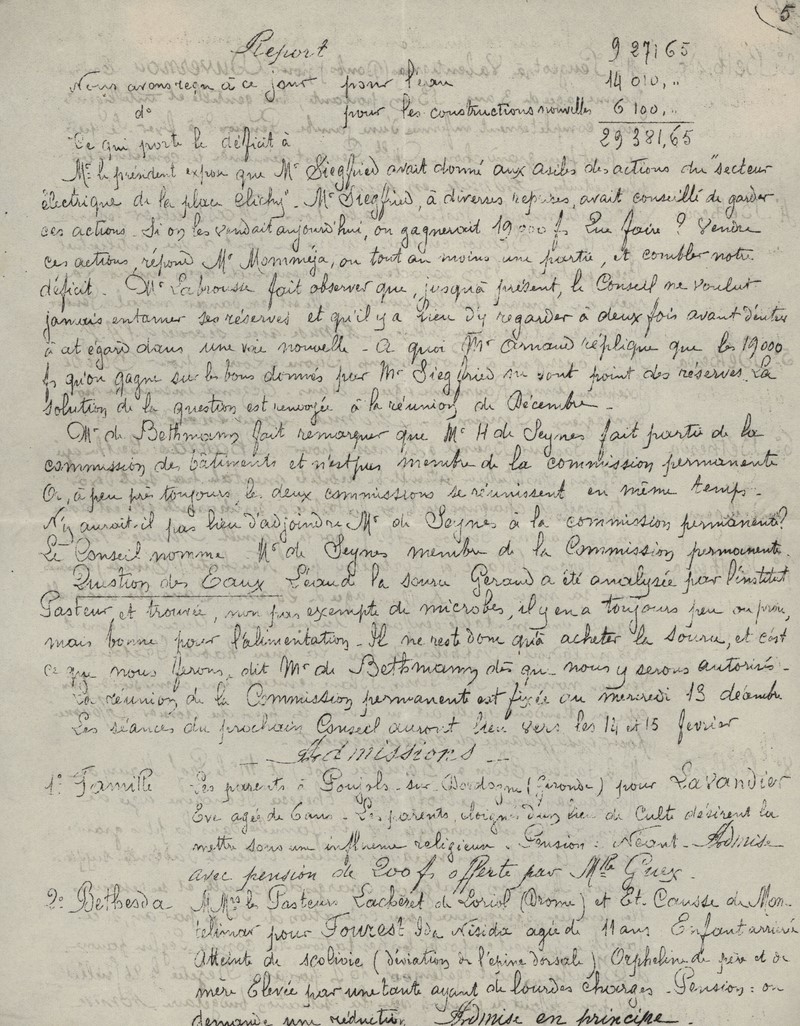 5
Report 9 271 65
Nous avons reçu à ce jour pour l'eau 14 010, "
d° pour les constructions nouvelles 6 100, "
Ce qui porte le déficit à 29 381, 65
Mr le président expose que Mr Siegfried avait donné aux asiles des actions du "secteur
électrique de la place Clichy". Mr Siegfried, à diverses reprises, avait conseillé de garder
ces actions. Si on les vendait aujourd'hui, on gagnerait 19 000 fs Que faire ? Vendre
ces actions, répond Mr Mommeja, ou tout au moins une partie, et combler notre
déficit. Mr Labrousse fait observer que, jusqu'à présent, le Conseil ne voulut
jamais entamer ses réserves et qu'il y a lieu d'y regarder à deux fois avant d'entrer
à cet égard dans une voie nouvelle. A quoi Mr Arnaud réplique que les 19 000
fs qu'on gagne sur les bons donnés par Mr Siegfried ne sont point des réserves. La
solution de la question est renvoyée à la réunion de Décembre.
Mr de Bethmann fait remarquer que Mr H de Seynes fait partie de la
commission des bâtiments et n'est pas membre de la commission permanente
Or, à peu près toujours, les deux commissions se réunissent en même temps.
N'y aurait-il pas lieu d'adjoindre Mr de Seynes à la commission permanente ?
Le Conseil nomme Mr de Seynes membre de la Commission permanente.
Question des Eaux L'eau de la source Géraud a été analysée par l'institut
Pasteur et trouvée, non pas exempte de microbes, il y en a toujours peu ou prou,
mais bonne pour l'alimentation. Il ne reste donc qu'à acheter la source, et c'est
ce que nous ferons, dit Mr de Bethmann dès que nous y serons autorisés.
La réunion de la Commission permanente est fixée au mercredi 13 décembre
Les séances du prochain Conseil auront lieu vers les 14 et 15 février
Admissions
1° Famille Les parents à Poujols-sur-Dordogne (Gironde) pour Lavandier
Eve agée de 6 ans. Les parents, éloignés d'un lieu de Culte désirent la
mettre sous une influence religieuse. Pension : Néant. Admise
avec pension de 200 fs offerte par Mlle Guex.
2° Bethesda. MMrs les Pasteurs Lacheret de Loriol (Drome) et Et. Causse de Mon-
télimar pour Fourest Ida Nisida agée de 11 ans Enfant arriérée
Atteinte de scoliose (déviation de l'épine dorsale) Orpheline de père et de
mère Elevée par une tante ayant de lourdes charges. Pension : on
demande une réduction. Admise en principe.